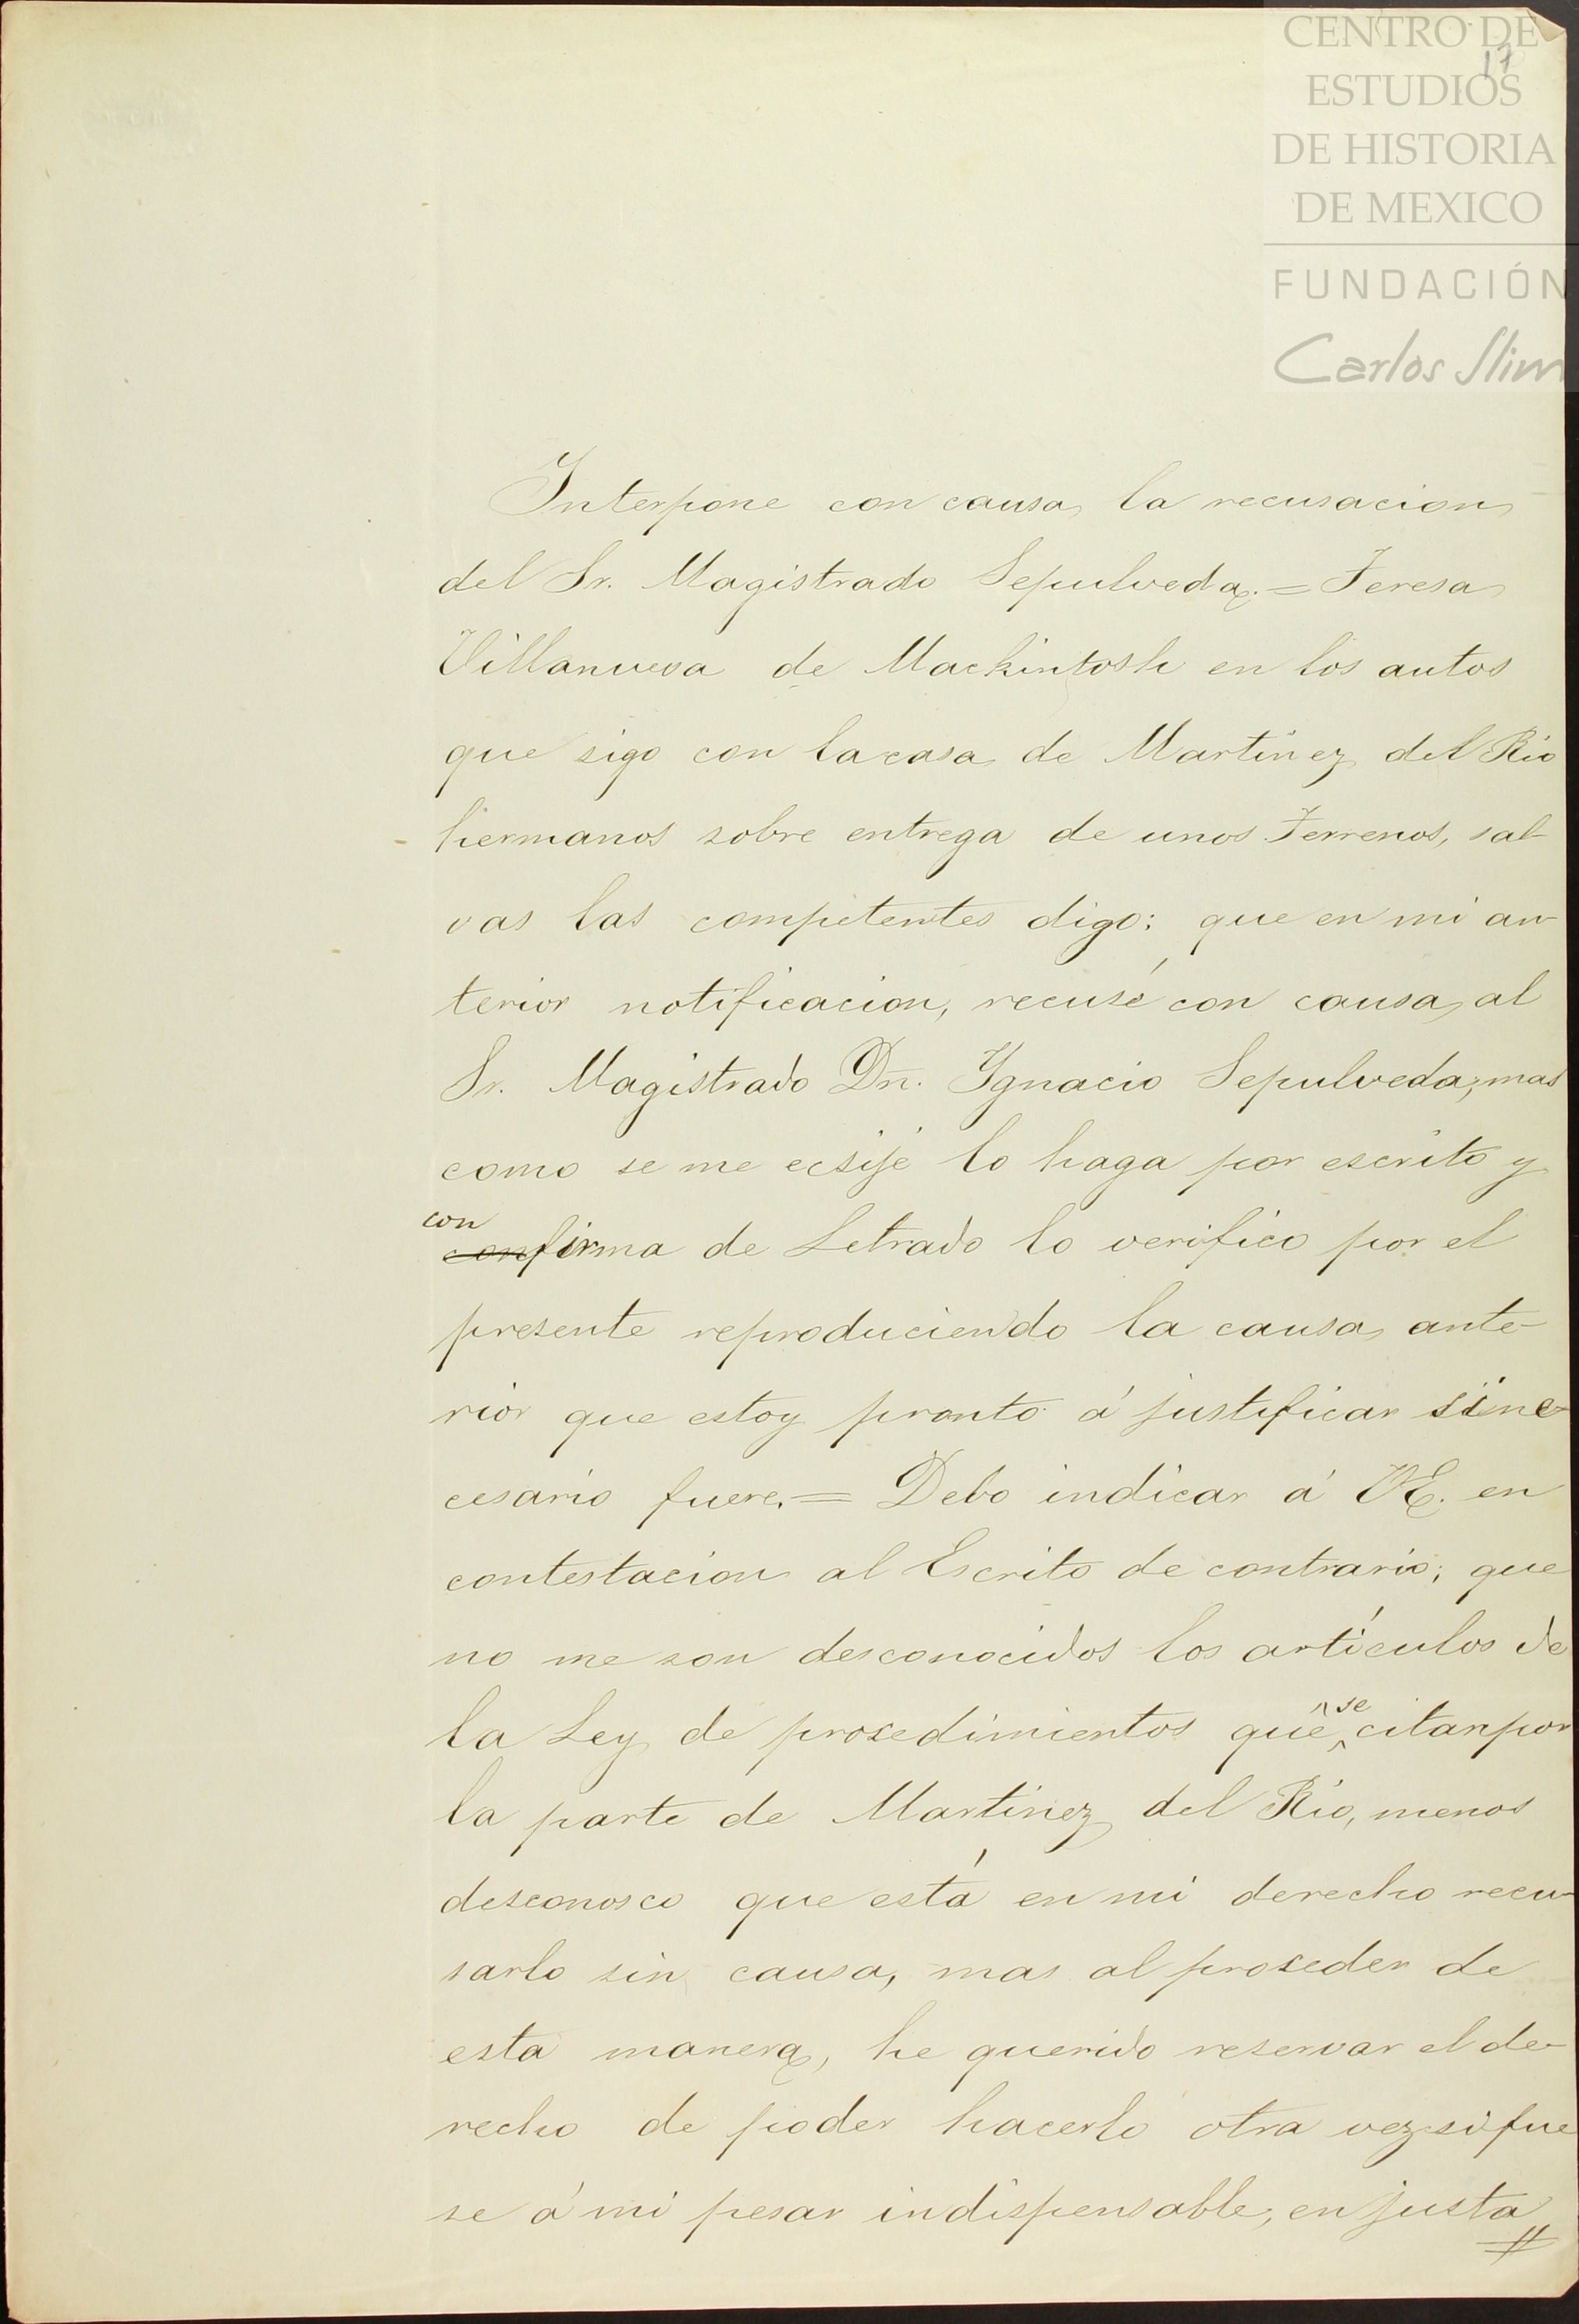 CENTRO DE
17
ESTUDIOS
DE HISTORIA
DE MEXICO
FUNDACIÓN
Carlos Slim
Interpone con causa la recusacion
del Sr. Magistrado Sepulveda. = Teresa
Villanueva de Mackintosh en los autos
que sigo con la casa de Martinez del Rio
hermanos sobre entrega de unos Terrenos, sal-
vas las competentes digo: que en mi an-
terior notificacion, recusé con causa al
Sr. Magistrado Dn. Ygnacio Sepulveda, mas
como se me ecsije lo haga por escrito y
con
con firma de Letrado lo verifico por el
presente reproduciendo la causa ante-
rior que estoy pronto á justificar si ne-
cesario fuere. = Debo indicar á VE. en
contestacion al Escrito de contrario; que
no me son desconocidos los artículos de
la Ley de prosedimientos que se citan por
la parte de Martinez del Rio, menos
desconosco que está en mi derecho recu-
sarlo sin causa, mas al proseder de
esta manera, he querido reservar el de-
recho de poder hacerlo otra vez si fue
se á mi pesar indispensable, en justa